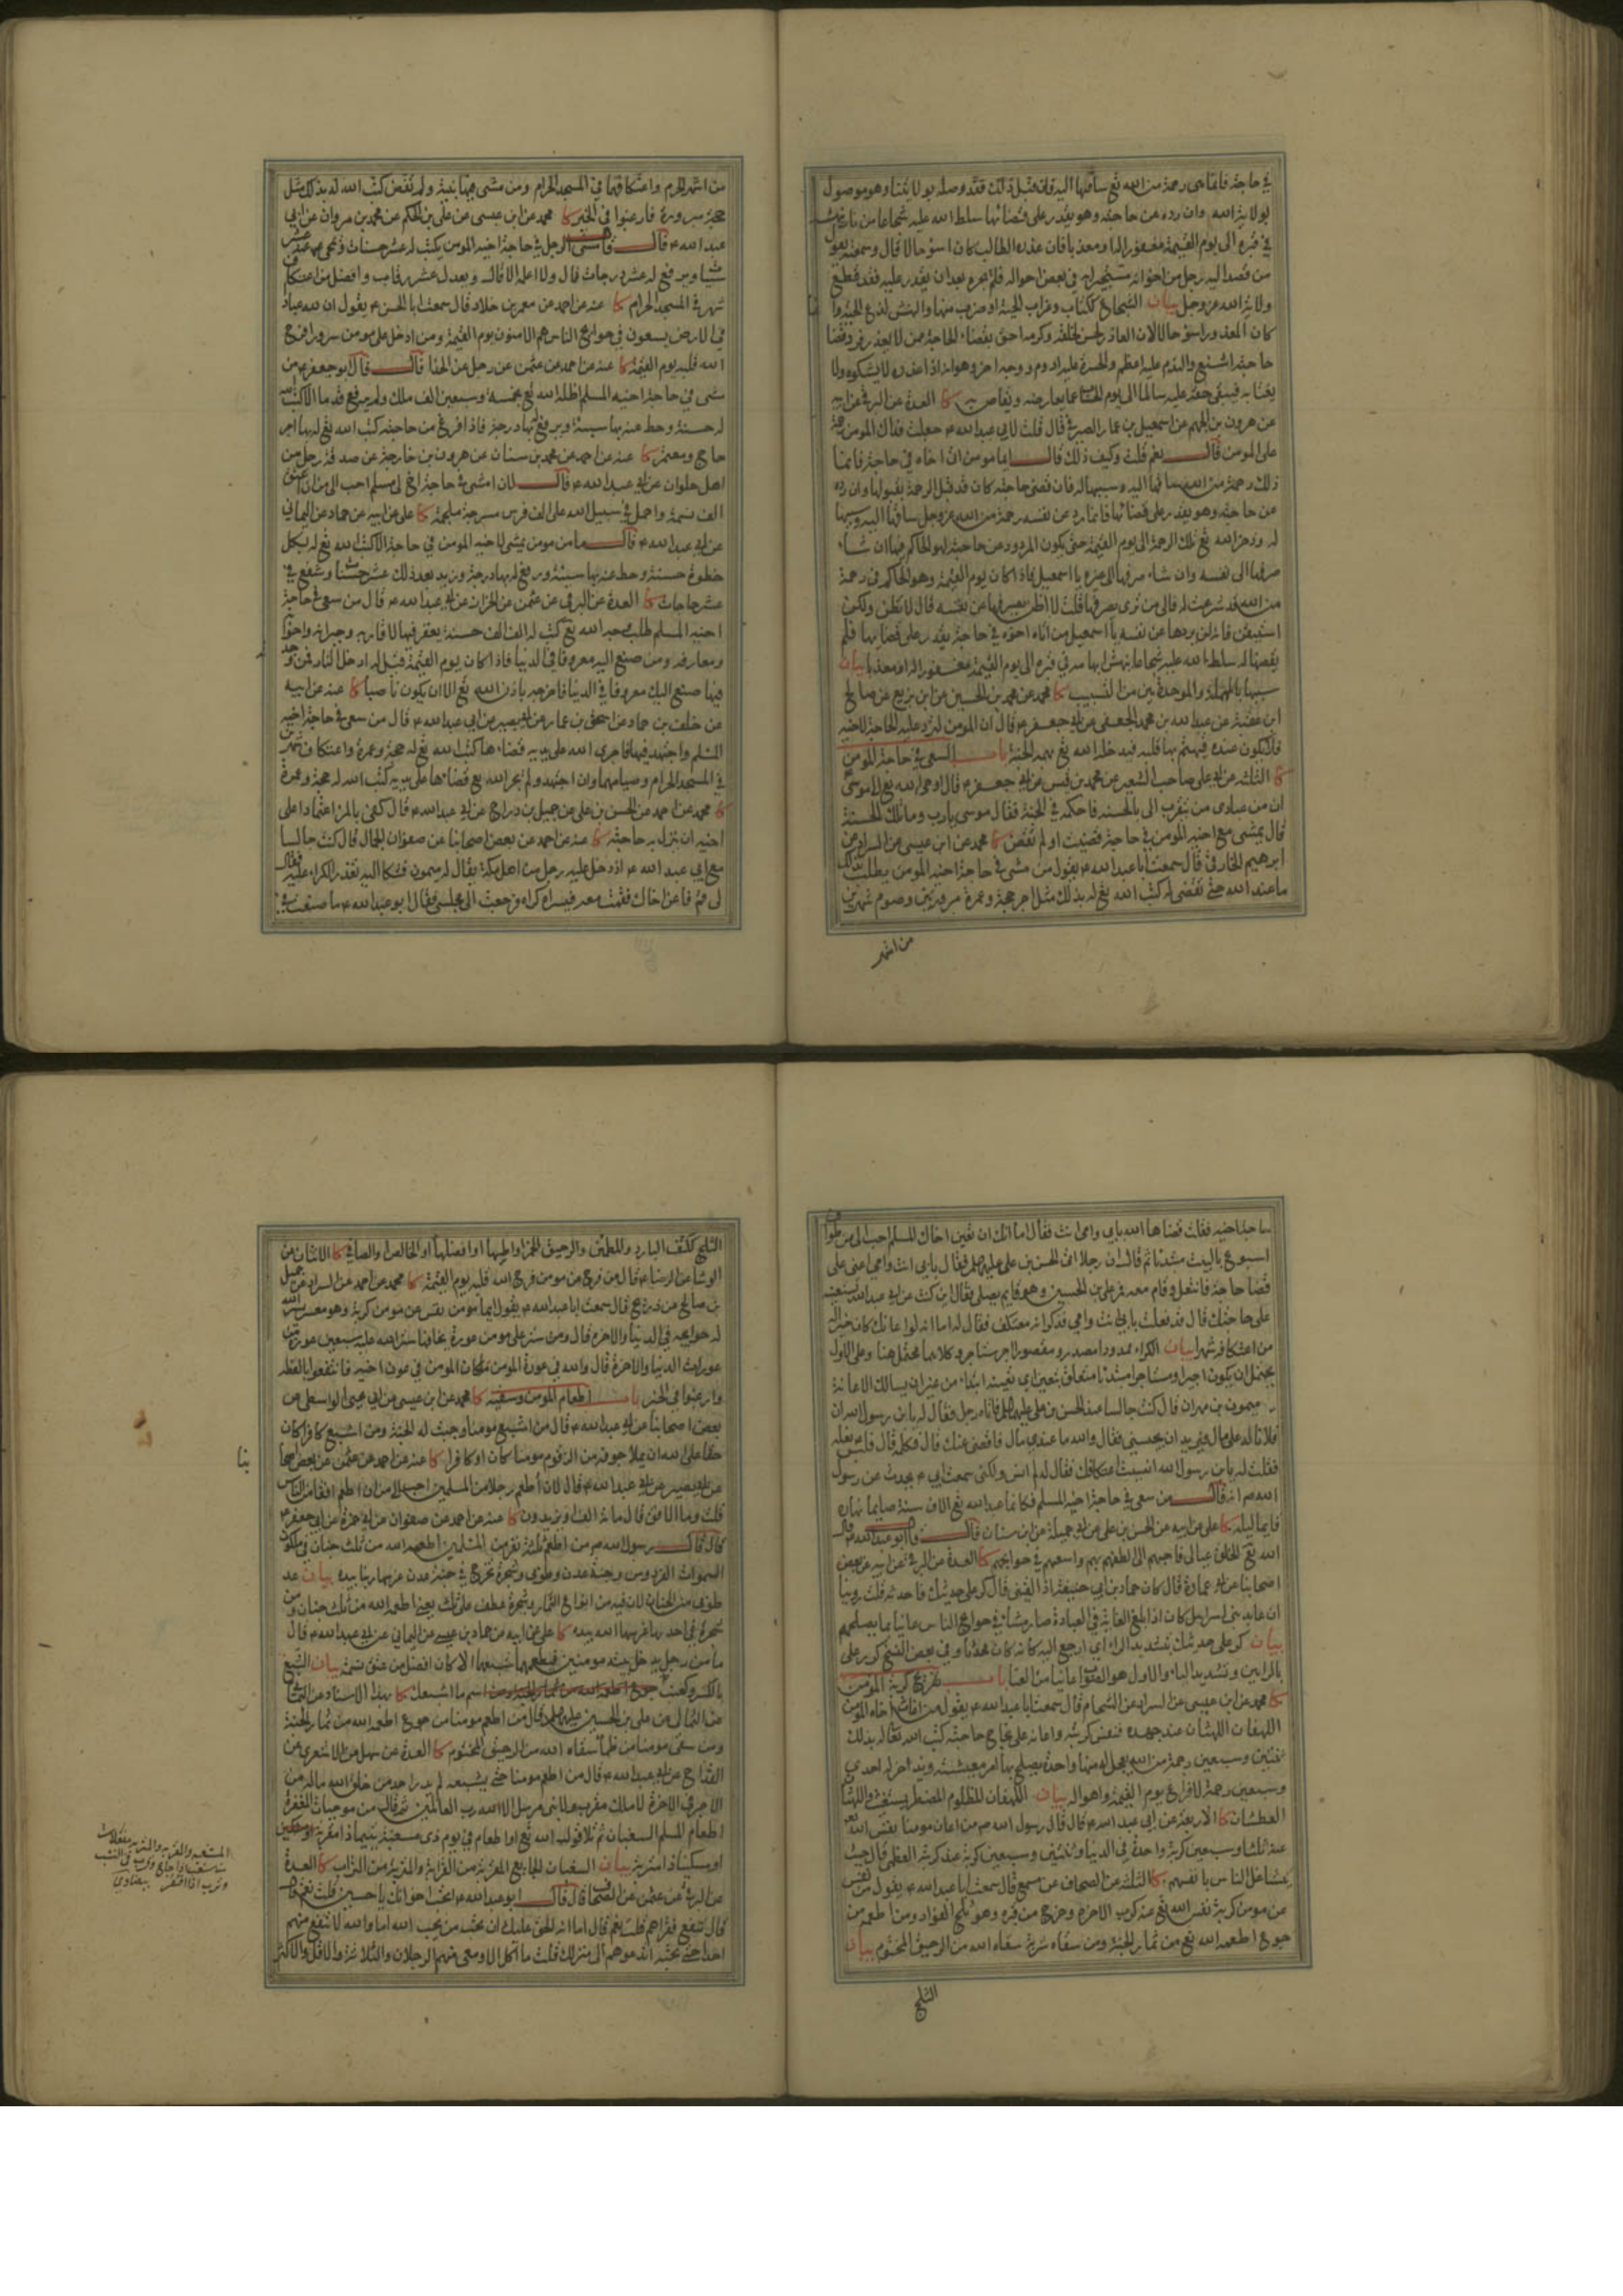 في حاجة فانما هى رحمة من الله تع ساقها اليه فان قبل ذلك فقد وصله بولايتنا وهو موصول
بولاية الله وان رده عن حاجته وهو يقدر على قضائها سلط الله عليه شجاعا من نار ينهشه
في قبره الى يوم القيمة مغفور اله او معذبا فان عذره الطالب كان اسوء حالا قال وسمعته يقول
من قصد اليه رجل من اخوانه مستجيرا به في بعض احواله فلم يجره بعد ان يقدر عليه فقد قطع
ولاية الله عز وجل بيان الشجاع ككتاب وغراب الحية او ضرب منها والنهش لذع الحية وا
كان المعذور اسوء حالا لان العاذر لحسن خلقه وكرمه احق بقضاء الحاجة ممن لا يعذر فرد قضاء
حاجته اشنع والندم عليه اعظم والحسرة عليه ادوم ووجه اخر وهو انه اذا عذره لا يشكوه ولا
يغتابه فيبقى حقه عليه سالما الى يوم الحساب كا العدة عن البرقي عن ابيه
عن هرون بن الجهم عن اسمعيل بن عمار الصيرفي قال قلت لابي عبد الله ع جعلت فداك المومن رحمة
على المومن قال نعم قلت وكيف ذلك قال ايما مومن اتى اخاه في حاجة فانما
ذلك رحمة من الله ساقها اليه وسببها له فان قضى حاجته كان قد قبل الرحمة بقبولها وان رده
عن حاجته وهو يقدر على قضائها فانما رد عن نفسه رحمة من الله عز وجل ساقها اليه وسببها
له وذخر الله تع تلك الرحمة الى يوم القيمة حتى يكون المردود عن حاجته هو الحاكم فيها ان شاء
صرفها الى نفسه وان شاء صرفها الى غيره يا اسمعيل فاذا كان يوم القيمة وهو الحاكم في رحمة
من الله قد شرعت له فالى من ترى يصرفها قلت لا اظن يصرفها عن نفسه قال لا تظن ولكن
استيقن فانه لن يردها عن نفسه يا اسمعيل من اتاه اخوه في حاجة يقدر على قضائها فلم
يقضها له سلط الله عليه شجاعا ينهش ابهامه في قبره الى يوم القيمة مغفورا له او معذبا بيان
سببها بالمهملة والموحدتين من التسبيب كا محمد عن محمد بن الحسين عن ابن بزيع عن صالح
ابن عقبة عن عبد الله بن محمد الجعفي عن ابي جعفر ع قال ان المومن لترد عليه الحاجة لاخيه
فلا يكون عنده فيهتم بها قلبه فيدخله الله تع بهمه الجنة باب السعي في حاجة المومن
كا الثلثة عن ابي على صاحب الشعير عن محمد بن قيس عن ابي جعفر ع قال اوحى الله تع الى موسى
ان من عبادى من يتقرب الى بالحسنة فاحكمه في الجنة فقال موسى يا رب وما تلك الحسنة
قال يمشى مع اخيه المومن في حاجة قضيت او لم تقض كا محمد عن ابن عيسى عن السراد عن
ابرهيم الخارقى قال سمعت ابا عبد الله ع يقول من مشى في حاجة اخيه المومن يطلب بذلك
ما عند الله حتى تقضى له كتب الله تع له بذلك مثل اجر حجة وعمرة مبرورتين وصوم شهرين
من اشهر
من اشهر الحرم واعتكافهما في المسجد الحرام ومن مشى فيها بنية ولم تقض كتب الله له بذلك مثل
حجة مبرورة فارغبوا في الخير كا محمد عن ابن عيسى عن على بن الحكم عن محمد بن مروان عن ابي
عبد الله ع قال مشى الرجل في حاجة اخيه المومن يكتب له عشر حسنات وتمحى عنه عشر
سيئات ويرفع له عشر درجات قال ولا اعلمه الا قال ويعدل عشر رقاب وافضل من اعتكاف
شهر في المسجد الحرام كا عنه عن احمد عن معمر بن خلاد قال سمعت ابا الحسن ع يقول ان لله عبادا
في الارض يسعون في حوائج الناس هم الامنون يوم القيمة ومن ادخل على مومن سرورا فرح
الله قلبه يوم القيمة كا عنه عن احمد عن عثمن عن رجل عن الحذا قال قال ابو جعفر ع من
مشى في حاجة اخيه المسلم اظله الله تع بخمسة وسبعين الف ملك ولم يرفع قدما الا كتب الله
له حسنة وحط عنه بها سيئة ويرفع له بها درجة فاذا فرغ من حاجته كتب الله تع له بها اجر
حاج ومعتمر كا عنه عن احمد عن محمد بن سنان عن هرون بن خارجة عن صدقة رجل من
اهل حلوان عن ابي عبد الله ع قال لان امشى في حاجة اخ لى مسلم احب الى من ان اعتق
الف نسمة واحمل في سبيل الله على الف فرس مسرجة ملجمة كا على عن ابيه عن حماد عن اليماني
عن ابي عبد الله ع قال ما من مومن يمشى لاخيه المومن في حاجة الا كتب الله تع له بكل
خطوة حسنة وحط عنه بها سيئة ورفع له بها درجة وزيد بعد ذلك عشر حسنات وشفع في
عشر حاجات كا العدة عن البرقى عن عثمن عن الخزاز عن ابي عبد الله ع قال من سعى في حاجة
اخيه المسلم طلب وجه الله تع كتب له الف الف حسنة يغفر فيها لاقاربه وجيرانه واخوانه
ومعارفه ومن صنع اليه معروفا في الدنيا فاذا كان يوم القيمة قيل له ادخل النار فمن وجدته
فيها صنع اليك معروفا في الدنيا فاخرجه باذن الله تع الا ان يكون ناصبا كا عنه عن ابيه
عن خلف بن حماد عن اسحق بن عمار عن ابي بصير عن ابي عبد الله ع قال من سعى في حاجة اخيه
المسلم واجتهد فيها فاجرى الله على يديه قضاءها كتب الله تع له حجة وعمرة واعتكاف شهرين
في المسجد الحرام وصيامهما وان اجتهد ولم يجر الله تع قضاءها على يديه كتب الله له حجة وعمرة
كا محمد عن احمد عن الحسن بن على عن جميل بن دراج عن ابي عبد الله ع قال كفى بالمرء اعتمادا على
اخيه ان ينزل به حاجته كا عنه عن احمد عن بعض اصحابنا عن صفوان الجمال قال كنت جالسا
مع ابي عبد الله ع اذ دخل عليه رجل من اهل مكة يقال له ميمون فشكا اليه تعذر الكراء عليه فقال
لى قم فاعن اخاك فقمت معه فيسر الله كراه فرجعت الى مجلسى فقال ابو عبد الله ع ما صنعت في
حاجة اخيك فقلت قضاها الله بابي وامى انت فقال اما انك ان تعين اخاك المسلم احب الى من طواف
اسبوع بالبيت مبتدئا ثم قال ان رجلا اتى الحسن بن على عليهما فقال بابي انت وامى اعنى على
قضاء حاجة فانتعل وقام معه فمر على الحسين وهو قايم يصلى فقال اين كنت عن ابي عبد الله تستعينه
على حاجتك قال قد فعلت بابي انت وامى فذكر انه معتكف فقال له اما انه لو اعانك كان خيرا له
من اعتكافه شهرا بيان الكراء ممدودا مصدر ومقصورا اجر مستاجر وكلاهما محتمل هنا وعلى الاول
يحتمل ان يكون اجيرا ومستاجرا مبتدئا متعلق بتعين اى تعينه ابتداء من غير ان يسالك الاعانة
ميمون بن مهران قال كنت جالسا عند الحسن بن على عليهما فاتاه رجل فقال له يا ابن رسول الله ان
فلانا له على مال ويريد ان يحبسنى فقال والله ما عندى مال فاقضى عنك قال فكلمه قال فلبس نعله
فقلت له يا ابن رسول الله انسيت اعتكافك فقال له لم انس ولكنى سمعت ابي ع يحدث عن رسول
الله ص انه قال من سعى في حاجة اخيه المسلم فكانما عبد الله تع تسعة الاف سنة صايما نهاره
قايما ليله كا على عن ابيه عن الحسن بن على عن ابي جميلة عن ابن سنان قال قال ابو عبد الله ع قال
الله تع الخلق عيالى فاحبهم الى الطفهم بهم واسعهم في حوايجهم كا العدة عن البرقي عن ابيه عن بعض
اصحابنا عن ابي عمارة قال كان حماد بن ابي حنيفة اذا لقينى قال كرر على حديثك فاحدثه قلت روينا
ان عابد بنى اسرائيل كان اذا بلغ الغاية في العبادة صار مشاء في حوائج الناس عانيا بما يصلحهم
بيان كر على حديثك بتشديد الراء اى ارجع اليه كانه كان محدثا وفي بعض النسخ كرر على
بالرايين وتشديد الياء والاول هو الصواب عانيا من العنا باب تفريج كربة المومن
كا محمد عن ابن عيسى عن السراد عن الشحام قال سمعت ابا عبد الله ع يقول من اغاث اخاه المومن
اللهفان اللهثان عند جهده فنفس كربته واعانه على نجاح حاجته كتب الله تعالى له بذلك
ثنتين وسبعين رحمة من الله يعجل له منها واحدة يصلح بها امر معيشته ويدخر له احدى
وسبعين رحمة لافزاع يوم القيمة واهواله بيان اللهفان المظلوم المضطر يستغيث واللهثان
العطشان كا الاربعة عن ابي عبد الله ع قال قال رسول الله ص من اعان مومنا نفس الله تع
عنه ثلثا وسبعين كربة واحدة في الدنيا وثنتين وسبعين كربة عند كربه العظمى قال حيث
يتشاغل الناس بانفسهم كا الثلثة عن الصحاف عن مسمع قال سمعت ابا عبد الله ع يقول من نفس
عن مومن كربة نفس الله تع عنه كرب الاخرة وخرج من قبره وهو ثلج الفؤاد ومن اطعمه من
جوع اطعمه الله تع من ثمار الجنة ومن سقاه شربة سقاه الله من الرحيق المختوم بيان
الثلج
الثلج ككتف البارد والمطمئن والرحيق الخمر او اطيبها او افضلها او الخالص او الصافي كا الاثنان عن
الوشا عن الرضا ع قال من فرج عن مومن فرج الله قلبه يوم القيمة كا محمد عن احمد عن السراد عن جميل
بن صالح عن ذريح قال سمعت ابا عبد الله ع يقول ايما مومن نفس عن مومن كربة وهو معسر يسر الله
له حوايجه في الدنيا والاخرة قال ومن ستر على مومن عورة يخافها ستر الله عليه سبعين عورة من
عورات الدنيا والاخرة قال والله في عون المومن ما كان المومن في عون اخيه فانتفعوا بالعظة
وارغبوا في الخير باب اطعام المومن وسقيه كا محمد عن ابن عيسى عن ابي يحيى الواسطى عن
بعض اصحابنا عن ابي عبد الله ع قال من اشبع مومنا وجبت له الجنة ومن اشبع كافرا كان
حقا على الله ان يملأ جوفه من الزقوم مومنا كان او كافرا كا عنه عن احمد عن عثمن عن بعض اصحا
بنا
عن ابي بصير عن ابي عبد الله ع قال لان اطعم رجلا من المسلمين احب الى من ان اطعم افقا من الناس
قلت وما الافق قال مائة الف او يزيدون كا عنه عن احمد عن صفوان عن ابي حمزة عن ابي جعفر ع
قال قال رسول الله ص من اطعم ثلثة نفر من المسلمين اطعمه الله من ثلث جنان في ملكوت
السموات الفردوس وجنة عدن وطوبى وشجرة تخرج في جنة عدن غرسها ربنا بيده بيان عد
طوبى من الجنان لان فيه من انواع الثمار وشجرة عطف على ثلث يعنى اطعمه الله من ثلث جنان ومن
شجرة في احدها غرسها الله بيده كا على عن ابيه عن حماد بن عيسى عن اليماني عن ابي عبد الله ع قال
ما من رجل يدخل بيته مومنين فيطعمهما شبعهما الا كان افضل من عتق نسمة بيان الشبع
بالكسر وكعنب اسم ما اشبعك كا بهذا الاسناد عن اليماني
عن الثمالى عن على بن الحسين عليهما قال من اطعم مومنا من جوع اطعمه الله من ثمار الجنة
ومن سقى مومنا من ظمأ سقاه الله من الرحيق المختوم كا العدة عن سهل عن الاشعرى عن
القداح عن ابي عبد الله ع قال من اطعم مومنا حتى يشبعه لم يدر احد من خلق الله ما له من
الاجر في الاخرة لا ملك مقرب ولا نبى مرسل الا الله رب العالمين ثم قال من موجبات المغفرة
اطعام المسلم السغبان ثم تلا قول الله تع او اطعام في يوم ذى مسغبة يتيما ذا مقربة
او مسكينا ذا متربة بيان السغبان الجايع المقربة من القرابة والمتربة من التراب كا العدة
عن البرقي عن عثمن عن الصحاف قال قال ابو عبد الله ع اتحب اخوانك يا حسين قلت نعم قال
قال تنفع فقراهم قلت نعم قال اما انه يحق عليك ان تحب من يحب الله اما والله لا تنفع منهم
احدا حتى تحبه اتدعوهم الى منزلك قلت ما آكل الا ومعى منهم الرجلان والثلاثة والاقل والاكثر
المسغبة والمقربة والمتربة مفعلات
من سغب اذا جاع وقرب في النسب
وترب اذا افتقر بيضاوي